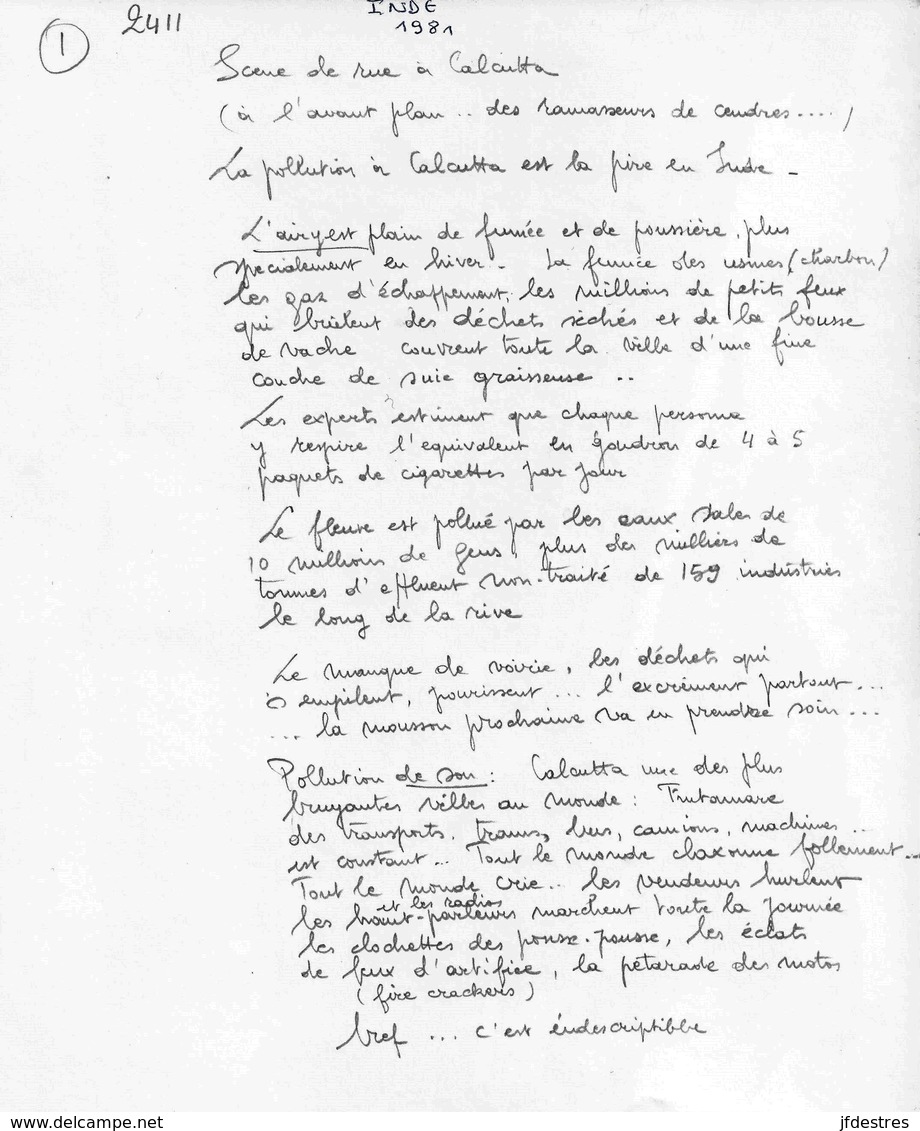 INDE
1981
1
2411
Scene de rue à Calcutta
(à l'avant plan .. des ramasseurs de cendres .... )
La pollution à Calcutta est la pire en Inde -
L'air y est plain de fumée et de poussière, plus
specialement en hiver - La fumée des usines (charbon)
les gaz d'échappement, les millions de petits feux
qui brûlent des déchets séchés et de la bouse
de vache couvrent toute la ville d'une fine
couche de suie graisseuse ..
Les experts estiment que chaque personne
y respire l'equivalent en goudron de 4 à 5
paquets de cigarettes par jour
Le fleuve est pollué par les eaux sales de
10 millions de gens, plus des milliers de
tonnes d'effluent non-traité de 159 industries
le long de la rive
Le manque de voirie, les déchets qui
s'empilent, pourissent ... l'excrément partout ...
... la mousson prochaine va en prendre soin ...
Pollution de son : Calcutta une des plus
bruyantes villes au monde : Tintamare
des transports. trams, bus, camions, machines ..
est constant ... Tout le monde claxonne follement ...
Tout le monde crie .. les vendeurs hurlent
et les radios
les haut-parleurs marchent toute la journée
les clochettes des pousse-pousse, les éclats
de feux d'artifice, la pétarade des motos
(fire crackers)
bref ... c'est éndescriptible
delcampe.net
jfdestres